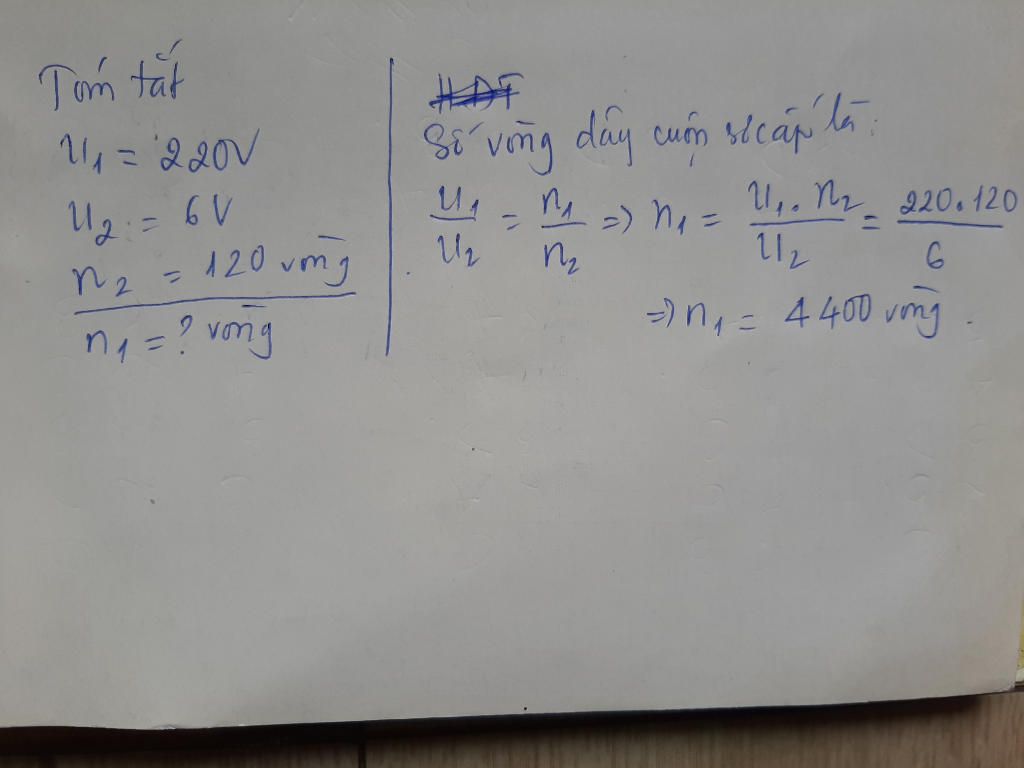 Tóm tắt
U1 = 220V
U2 = 6V
n2 = 120 vòng
n1 = ? vòng
HĐT
Số vòng dây cuộn sơ cấp là:
U1/U2 = n1/n2 => n1 = U1.n2/U2 = 220.120/6
=> n1 = 4400 vòng.